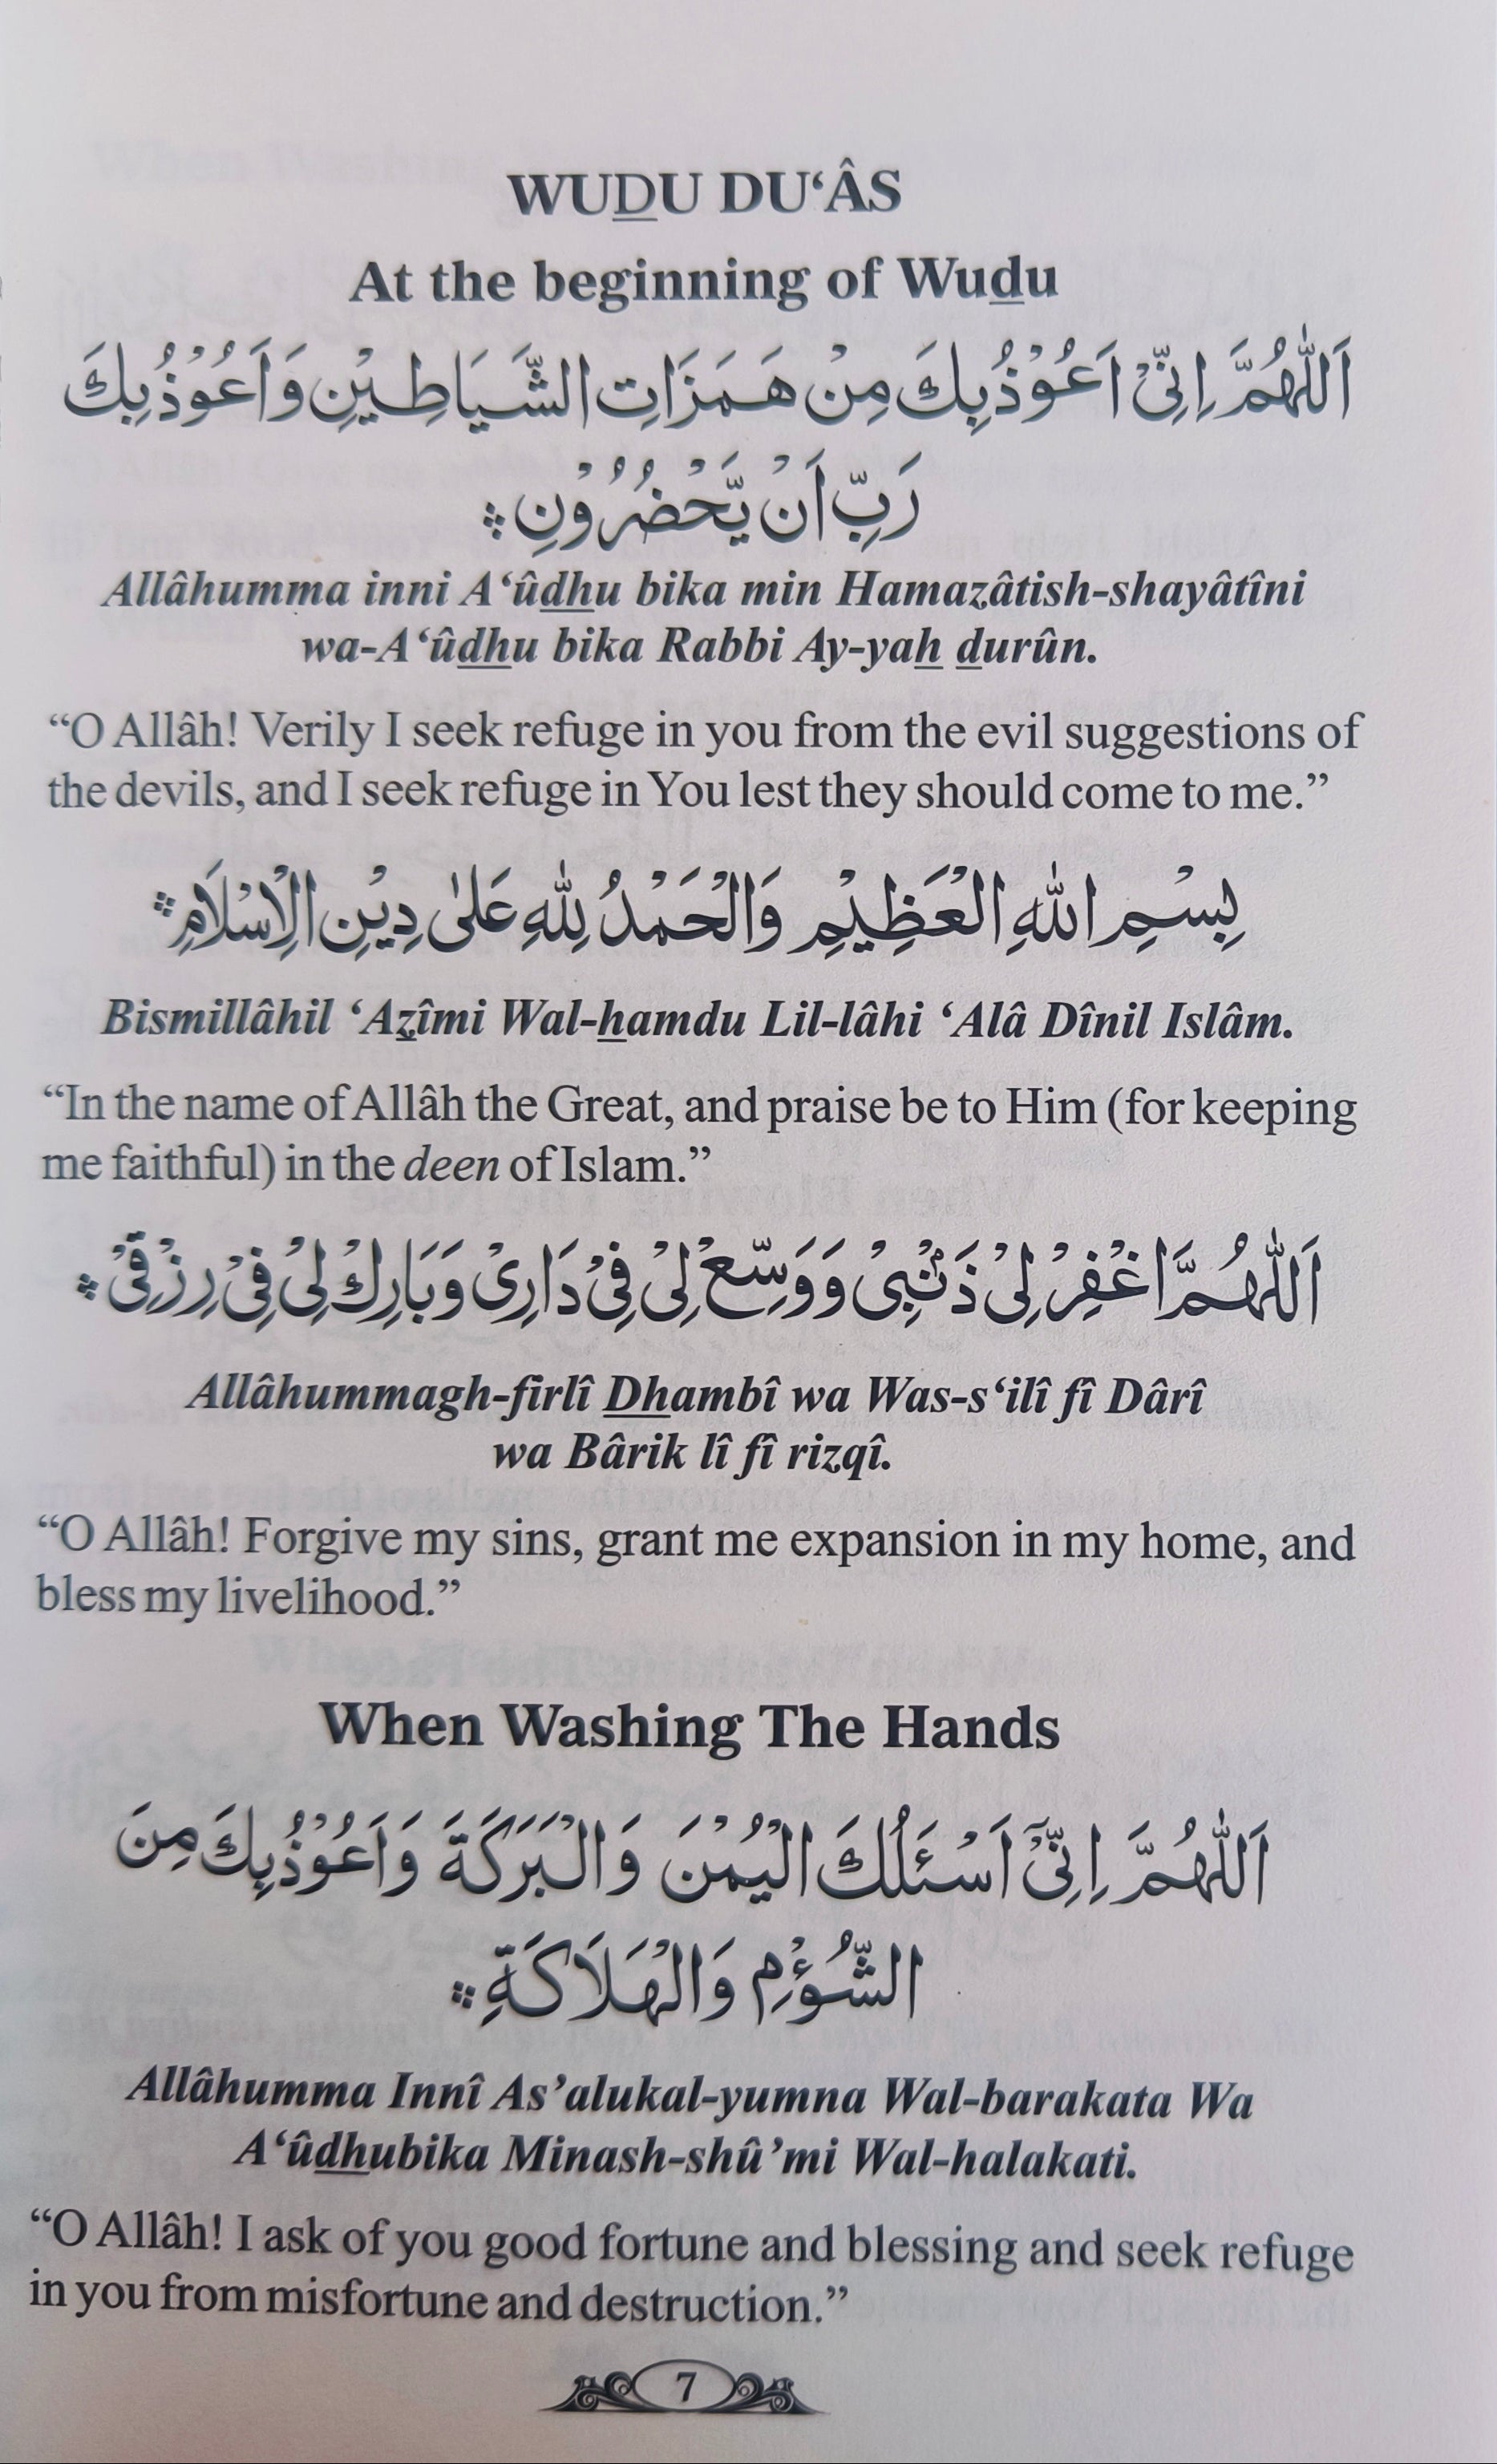 WUḎU DU‘ÂS
At the beginning of Wuḏu
اَللّٰهُمَّ اِنِّيْ اَعُوْذُبِكَ مِنْ هَمَزَاتِ الشَّيَاطِيْنِ وَاَعُوْذُبِكَ
رَبِّ اَنْ يَّحْضُرُوْنِ
Allâhumma inni A‘ûdhu bika min Hamazâtish-shayâtîni
wa-A‘ûdhu bika Rabbi Ay-yaẖ ḏurûn.
“O Allâh! Verily I seek refuge in you from the evil suggestions of
the devils, and I seek refuge in You lest they should come to me.”
بِسْمِ اللهِ الْعَظِيْمِ وَالْحَمْدُ لِلّٰهِ عَلٰى دِيْنِ الْاِسْلَامِ
Bismillâhil ‘Aẕîmi Wal-ẖamdu Lil-lâhi ‘Alâ Dînil Islâm.
“In the name of Allâh the Great, and praise be to Him (for keeping
me faithful) in the deen of Islam.”
اَللّٰهُمَّ اغْفِرْ لِىْ ذَنْۢبِىْ وَوَسِّعْ لِىْ فِىْ دَارِىْ وَبَارِكْ لِىْ فِىْ رِزْقِىْ
Allâhummagh-firlî Dhambî wa Was-s‘ilî fî Dârî
wa Bârik lî fî rizqî.
“O Allâh! Forgive my sins, grant me expansion in my home, and
bless my livelihood.”
When Washing The Hands
اَللّٰهُمَّ اِنِّىْٓ اَسْئَلُكَ الْيُمْنَ وَالْبَرَكَةَ وَاَعُوْذُبِكَ مِنَ
الشُّوْءْمِ وَالْهَلَاكَةِ
Allâhumma Innî As’alukal-yumna Wal-barakata Wa
A‘ûdhubika Minash-shû’mi Wal-halakati.
“O Allâh! I ask of you good fortune and blessing and seek refuge
in you from misfortune and destruction.”
7